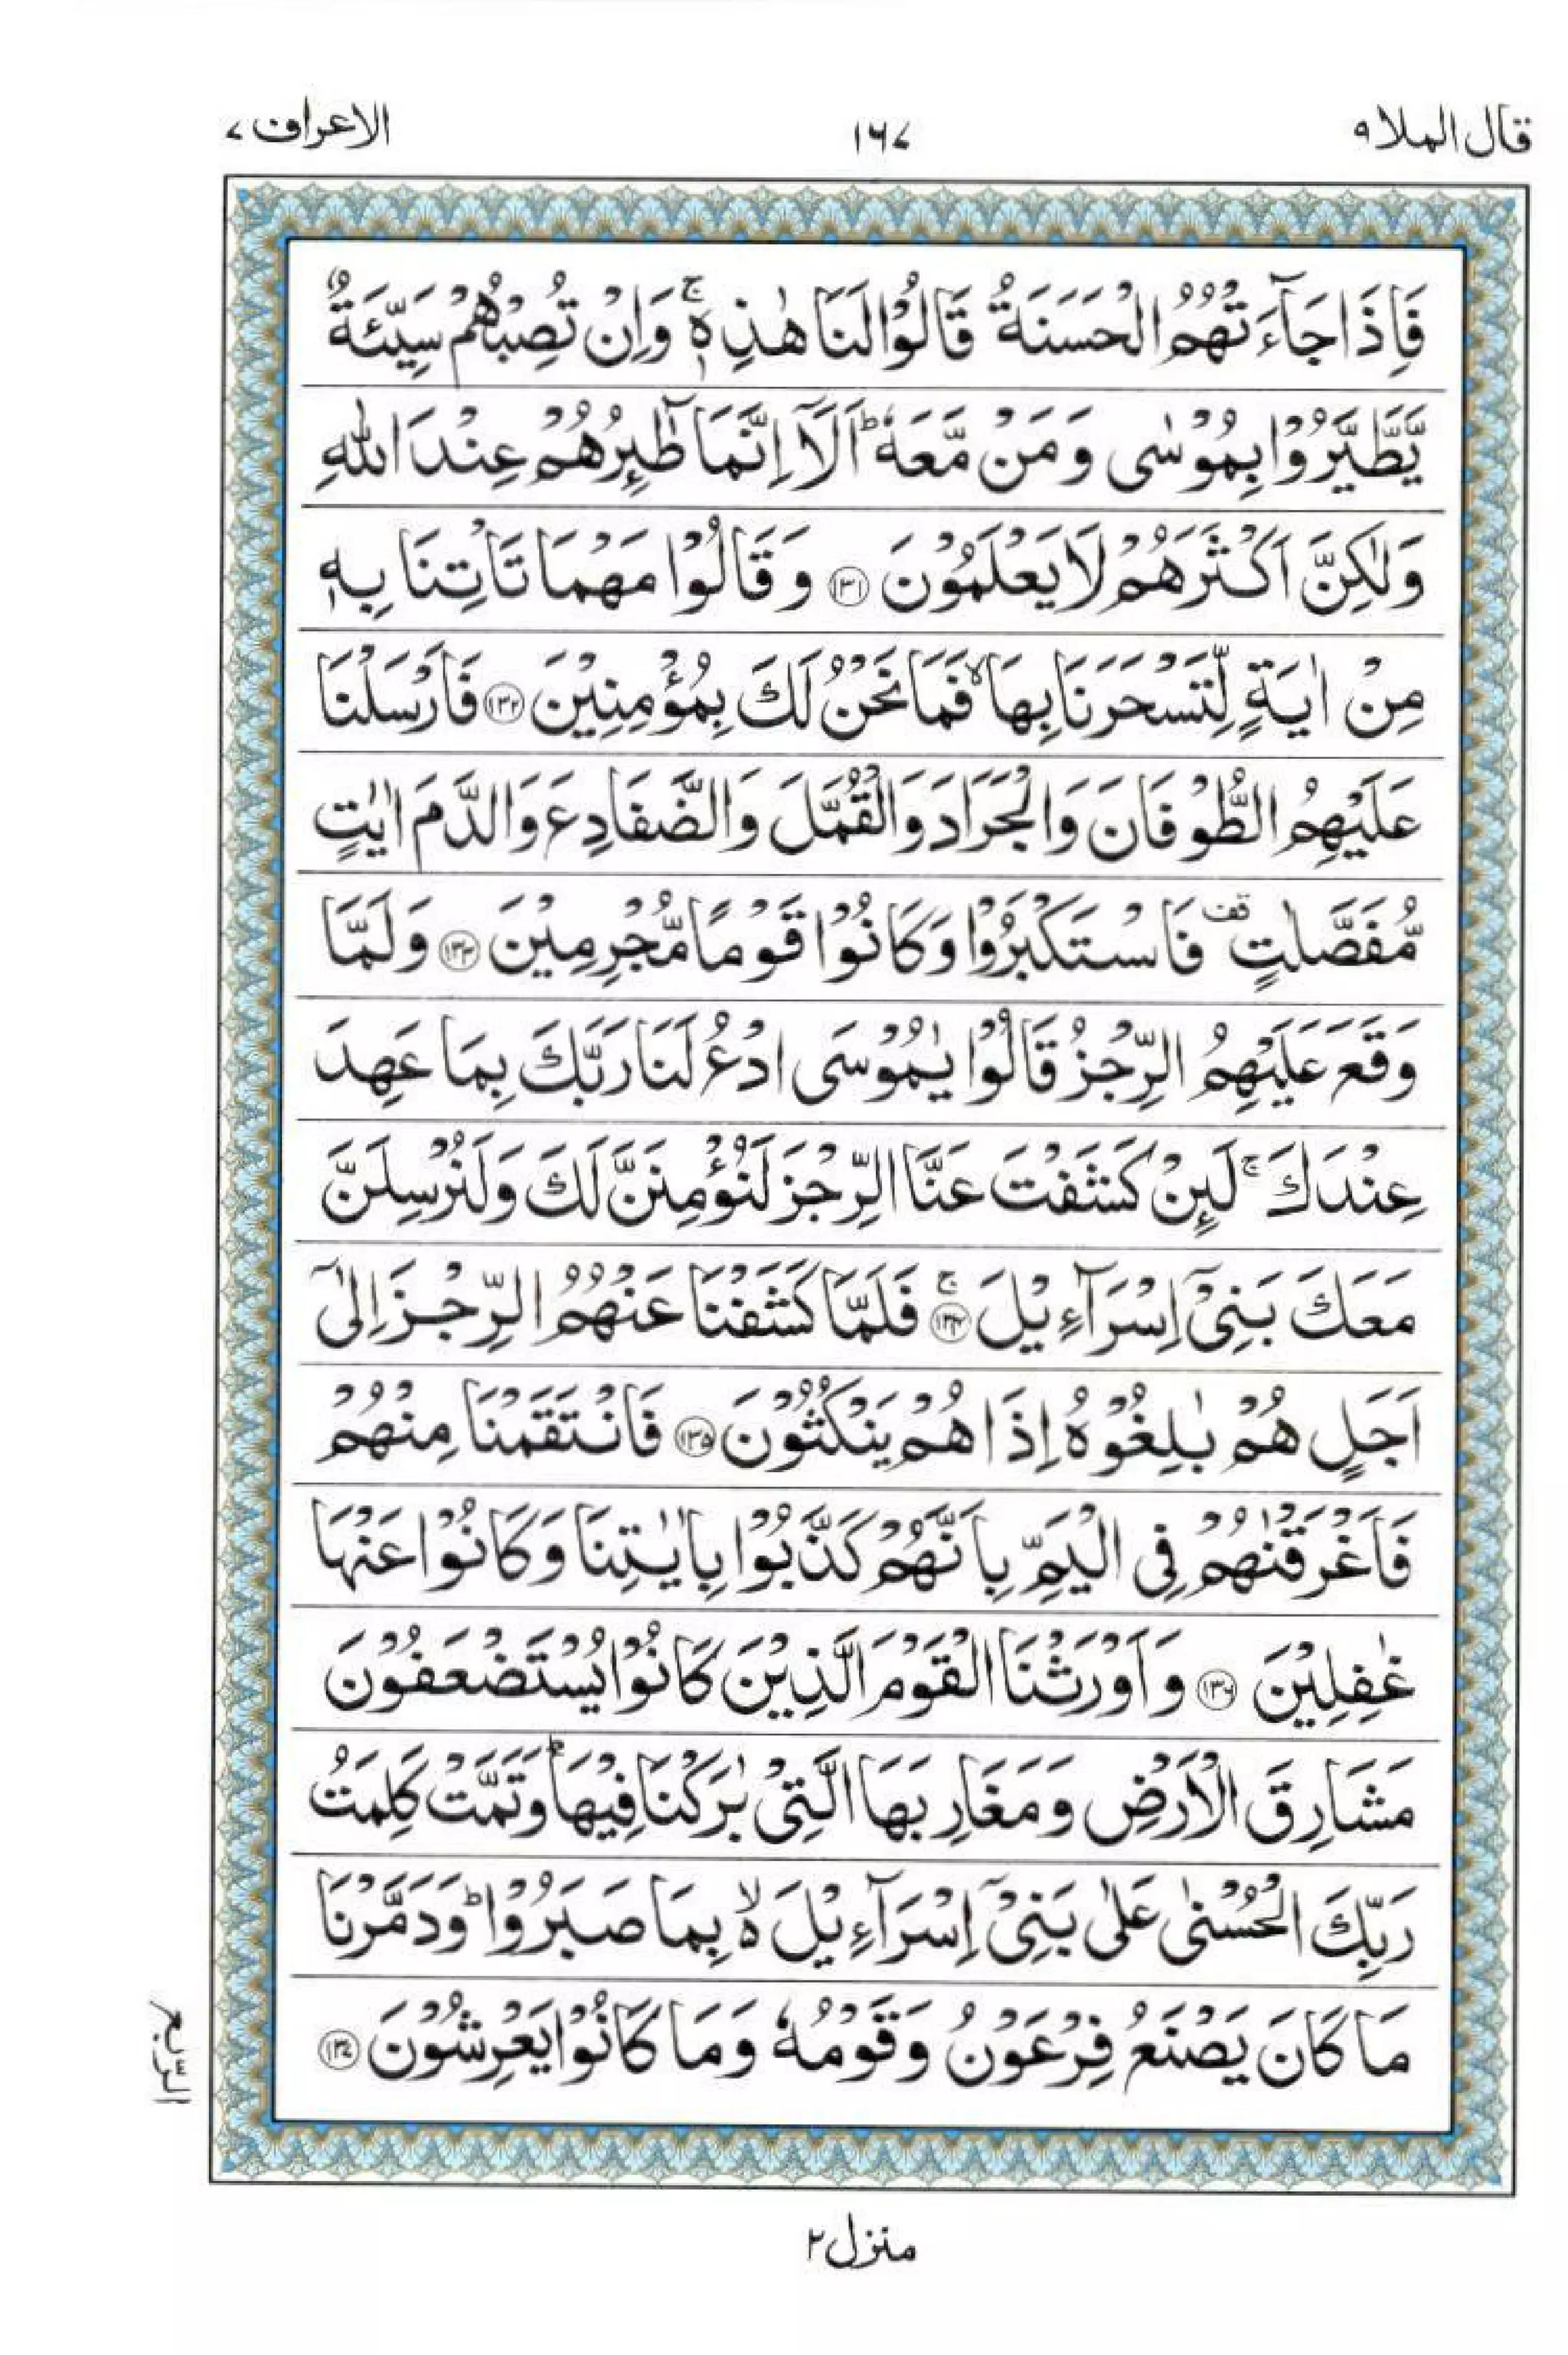 قال الملا ۹
۱۶۷
الاعراف ۷
فَاِذَا جَآءَتْهُمُ الْحَسَنَةُ قَالُوْا لَنَا هٰذِهٖ ۚ وَاِنْ تُصِبْهُمْ سَيِّئَةٌ
يَّطَّيَّرُوْا بِمُوْسٰى وَمَنْ مَّعَهٗ ؕ اَلَاۤ اِنَّمَا طٰٓئِرُهُمْ عِنْدَ اللّٰهِ
وَلٰكِنَّ اَكْثَرَهُمْ لَا يَعْلَمُوْنَ ﴿۱۳۱﴾ وَقَالُوْا مَهْمَا تَاْتِنَا بِهٖ
مِنْ اٰيَةٍ لِّتَسْحَرَنَا بِهَا ۙ فَمَا نَحْنُ لَكَ بِمُؤْمِنِيْنَ ﴿۱۳۲﴾ فَاَرْسَلْنَا
عَلَيْهِمُ الطُّوْفَانَ وَالْجَرَادَ وَالْقُمَّلَ وَالضَّفَادِعَ وَالدَّمَ اٰيٰتٍ
مُّفَصَّلٰتٍ قف فَاسْتَكْبَرُوْا وَكَانُوْا قَوْمًا مُّجْرِمِيْنَ ﴿۱۳۳﴾ وَلَمَّا
وَقَعَ عَلَيْهِمُ الرِّجْزُ قَالُوْا يٰمُوْسَى ادْعُ لَنَا رَبَّكَ بِمَا عَهِدَ
عِنْدَكَ ۚ لَئِنْ كَشَفْتَ عَنَّا الرِّجْزَ لَنُؤْمِنَنَّ لَكَ وَلَنُرْسِلَنَّ
مَعَكَ بَنِيْۤ اِسْرَآءِيْلَ ۚ ﴿۱۳۴﴾ فَلَمَّا كَشَفْنَا عَنْهُمُ الرِّجْزَ اِلٰۤى
اَجَلٍ هُمْ بٰلِغُوْهُ اِذَا هُمْ يَنْكُثُوْنَ ﴿۱۳۵﴾ فَانْتَقَمْنَا مِنْهُمْ
فَاَغْرَقْنٰهُمْ فِى الْيَمِّ بِاَنَّهُمْ كَذَّبُوْا بِاٰيٰتِنَا وَكَانُوْا عَنْهَا
غٰفِلِيْنَ ﴿۱۳۶﴾ وَاَوْرَثْنَا الْقَوْمَ الَّذِيْنَ كَانُوْا يُسْتَضْعَفُوْنَ
مَشَارِقَ الْاَرْضِ وَمَغَارِبَهَا الَّتِىْ بٰرَكْنَا فِيْهَا ؕ وَتَمَّتْ كَلِمَتُ
رَبِّكَ الْحُسْنٰى عَلٰى بَنِيْۤ اِسْرَآءِيْلَ ۙ۬ بِمَا صَبَرُوْا ؕ وَدَمَّرْنَا
مَا كَانَ يَصْنَعُ فِرْعَوْنُ وَقَوْمُهٗ وَمَا كَانُوْا يَعْرِشُوْنَ ﴿۱۳۷﴾
الرّبع
منزل ۲